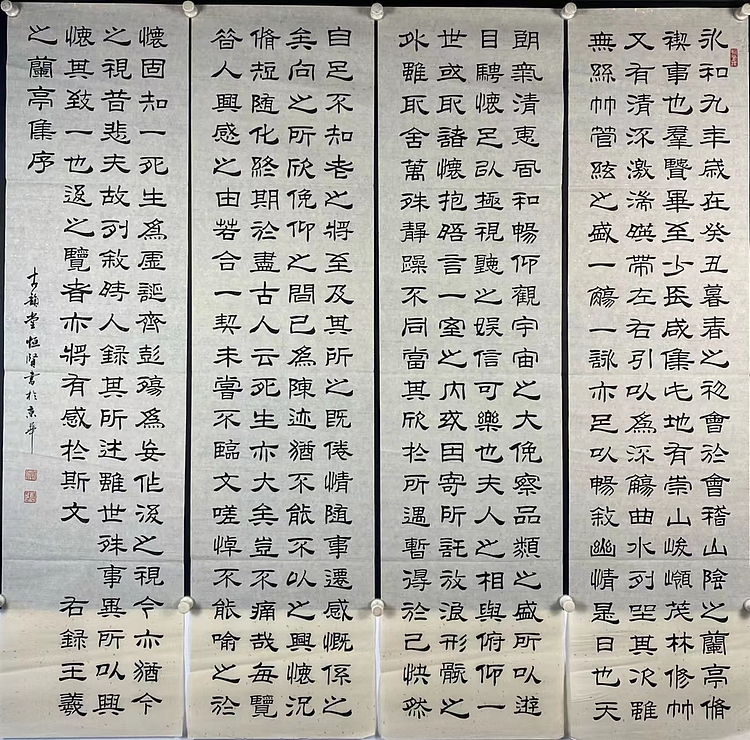 永和九年歲在癸丑暮春之初會於會稽山陰之蘭亭脩
禊事也羣賢畢至少長咸集此地有崇山峻嶺茂林修竹
又有清流激湍映帶左右引以為流觴曲水列坐其次雖
無絲竹管絃之盛一觴一詠亦足以暢敘幽情是日也天
朗氣清惠風和暢仰觀宇宙之大俛察品類之盛所以遊
目騁懷足以極視聽之娛信可樂也夫人之相與俯仰一
世或取諸懷抱晤言一室之內或因寄所託放浪形骸之
外雖取舍萬殊靜躁不同當其欣於所遇暫得於己快然
自足不知老之將至及其所之既倦情隨事遷感慨係之
矣向之所欣俛仰之間已為陳迹猶不能不以之興懷況
脩短隨化終期於盡古人云死生亦大矣豈不痛哉每覽
昔人興感之由若合一契未嘗不臨文嗟悼不能喻之於
懷固知一死生為虛誕齊彭殤為妄作後之視今亦猶今
之視昔悲夫故列敘時人錄其所述雖世殊事異所以興
懷其致一也後之覽者亦將有感於斯文 右錄王羲
之蘭亭集序
韻堂恒賢書於京華